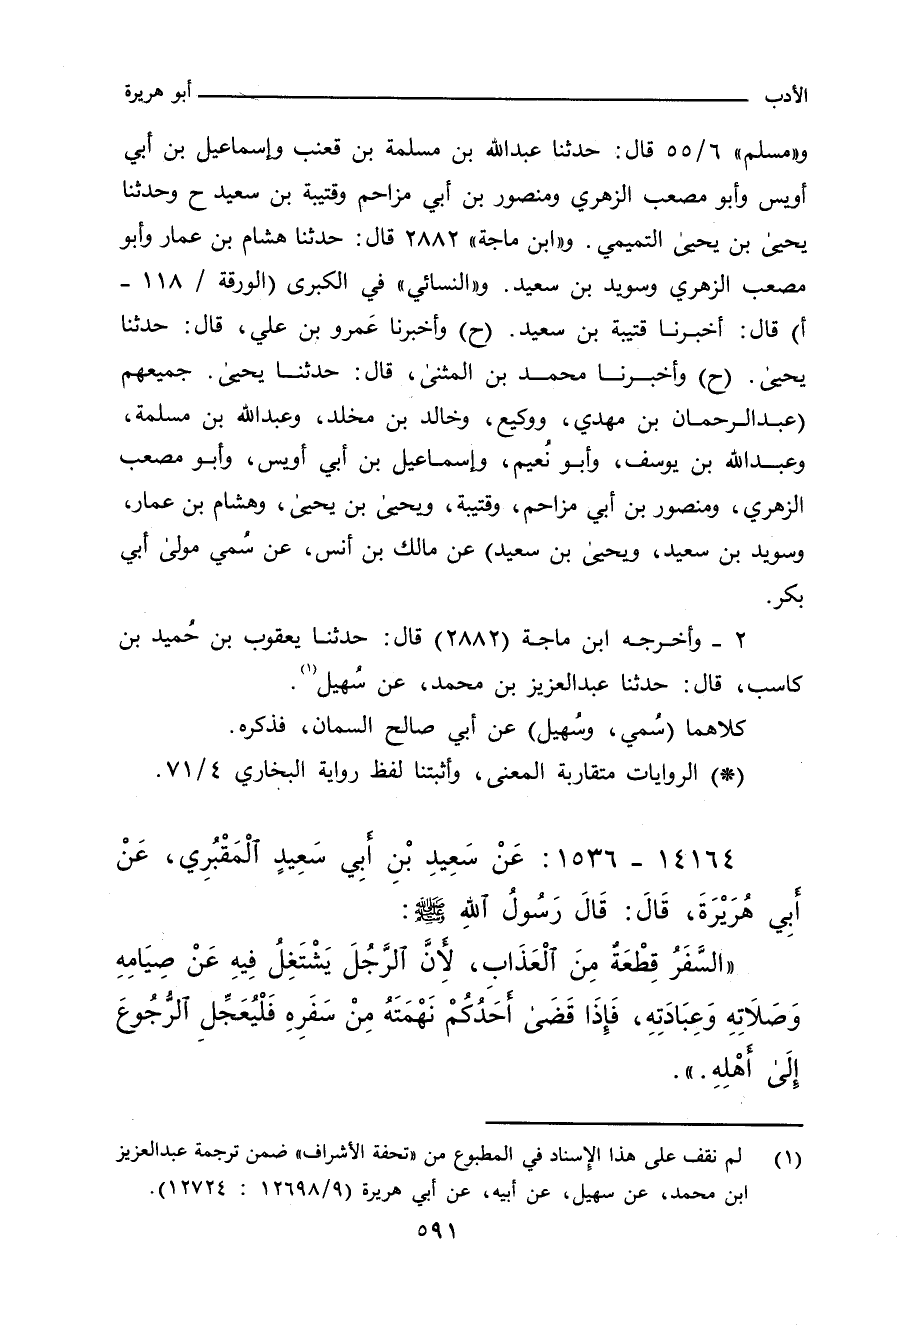 الأدب ــــــــــــــــــــ أبو هريرة
و«مسلم» ٥٥/٦ قال: حدثنا عبدالله بن مسلمة بن قعنب وإسماعيل بن أبي
أويس وأبو مصعب الزهري ومنصور بن أبي مزاحم وقتيبة بن سعيد ح وحدثنا
يحيىٰ بن يحيىٰ التميمي. و«ابن ماجة» ٢٨٨٢ قال: حدثنا هشام بن عمار وأبو
مصعب الزهري وسويد بن سعيد. و«النسائي» في الكبرى (الورقة / ١١٨ -
أ) قال: أخبرنا قتيبة بن سعيد. (ح) وأخبرنا عَمرو بن علي، قال: حدثنا
يحيىٰ. (ح) وأخبرنا محمد بن المثنىٰ، قال: حدثنا يحيىٰ. جميعهم
(عبدالرحمان بن مهدي، ووكيع، وخالد بن مخلد، وعبدالله بن مسلمة،
وعبدالله بن يوسف، وأبو نُعيم، وإسماعيل بن أبي أويس، وأبو مصعب
الزهري، ومنصور بن أبي مزاحم، وقتيبة، ويحيىٰ بن يحيىٰ، وهشام بن عمار،
وسويد بن سعيد، ويحيىٰ بن سعيد) عن مالك بن أنس، عن سُمي مولىٰ أبي
بكر.
٢ - وأخرجه ابن ماجة (٢٨٨٢) قال: حدثنا يعقوب بن حُميد بن
كاسب، قال: حدثنا عبدالعزيز بن محمد، عن سُهيل(١).
كلاهما (سُمي، وسُهيل) عن أبي صالح السمان، فذكره.
(*) الروايات متقاربة المعنى، وأثبتنا لفظ رواية البخاري ٧١/٤.
١٤١٦٤ - ١٥٣٦: عَنْ سَعِيدِ بْنِ أَبِي سَعِيدٍ ٱلْمَقْبُرِي، عَنْ
أَبِي هُرَيْرَةَ، قَالَ: قَالَ رَسُولُ ٱللهِ ﷺ:
«السَّفَرُ قِطْعَةٌ مِنَ ٱلْعَذَابِ، لِأَنَّ ٱلرَّجُلَ يَشْتَغِلُ فِيهِ عَنْ صِيَامِهِ
وَصَلَاتِهِ وَعِبَادَتِهِ، فَإِذَا قَضَىٰ أَحَدُكُمْ نَهْمَتَهُ مِنْ سَفَرِهِ فَلْيُعَجِّلِ ٱلرُّجُوعَ
إِلَىٰ أَهْلِهِ.».
(١) لم نقف على هذا الإسناد في المطبوع من «تحفة الأشراف» ضمن ترجمة عبدالعزيز
ابن محمد، عن سهيل، عن أبيه، عن أبي هريرة (١٢٦٩٨/٩ : ١٢٧٢٤).
٥٩١